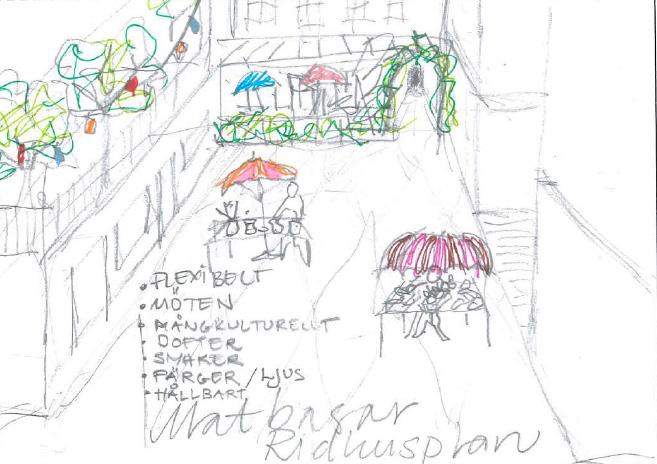 • FLEXIBELT
• MÖTEN
• MÅNGKULTURELLT
• DOFTER
• SMAKER
• FÄRGER / LJUS
• HÅLLBART
Matbasar
Ridhusplan